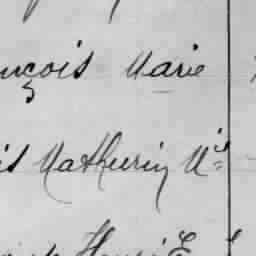 nçois Marie
is Mathurin M
Henri E